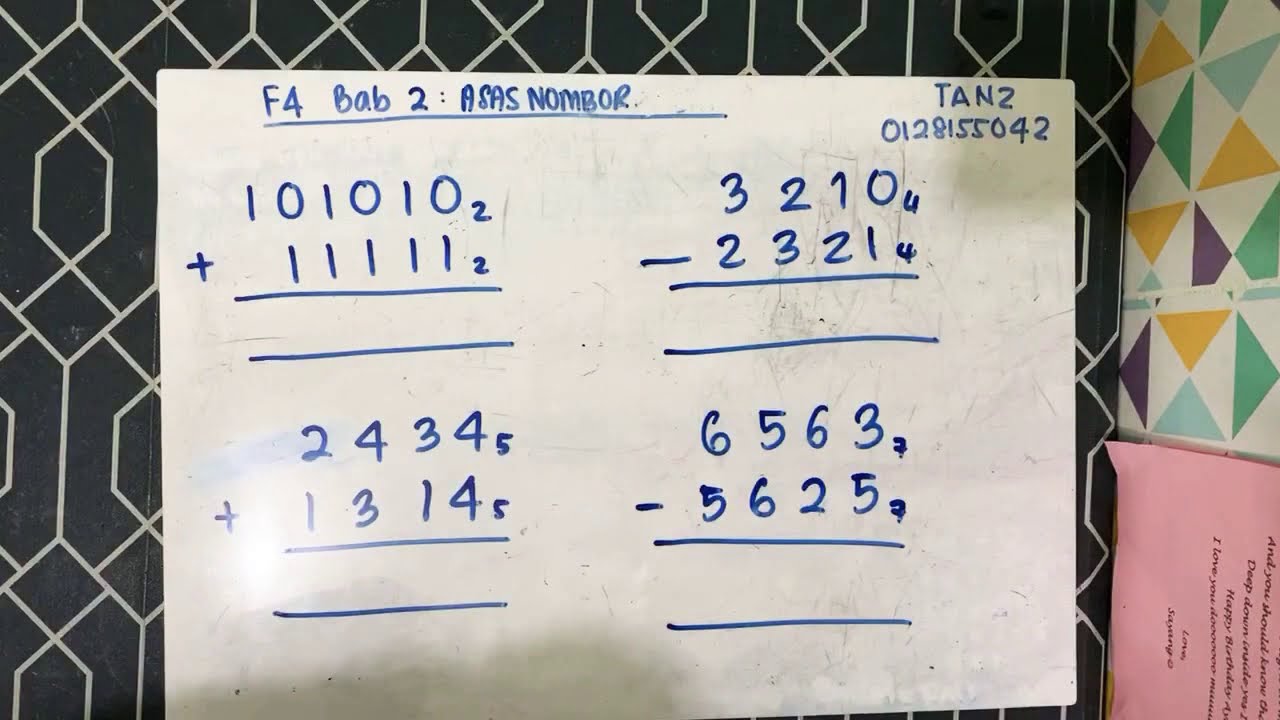 F4 Bab 2: ASAS NOMBOR
TANZ
0128155042
101010₂
+ 11111₂
3210₄
- 2321₄
2434₅
+ 1314₅
6563₇
- 5625₇
And you should know tha
Deep down inside you
Happy Birthday
I love you
Love,